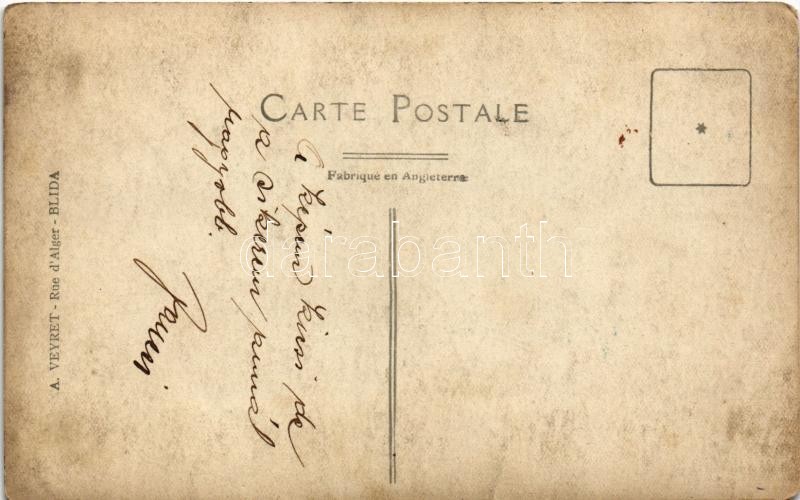 CARTE POSTALE
Fabriqué en Angleterre
A. VEYRET - Rue d'Alger - BLIDA
A képünk kicsi de
a sikerünk annál
nagyobb.
Jenci
darabanth